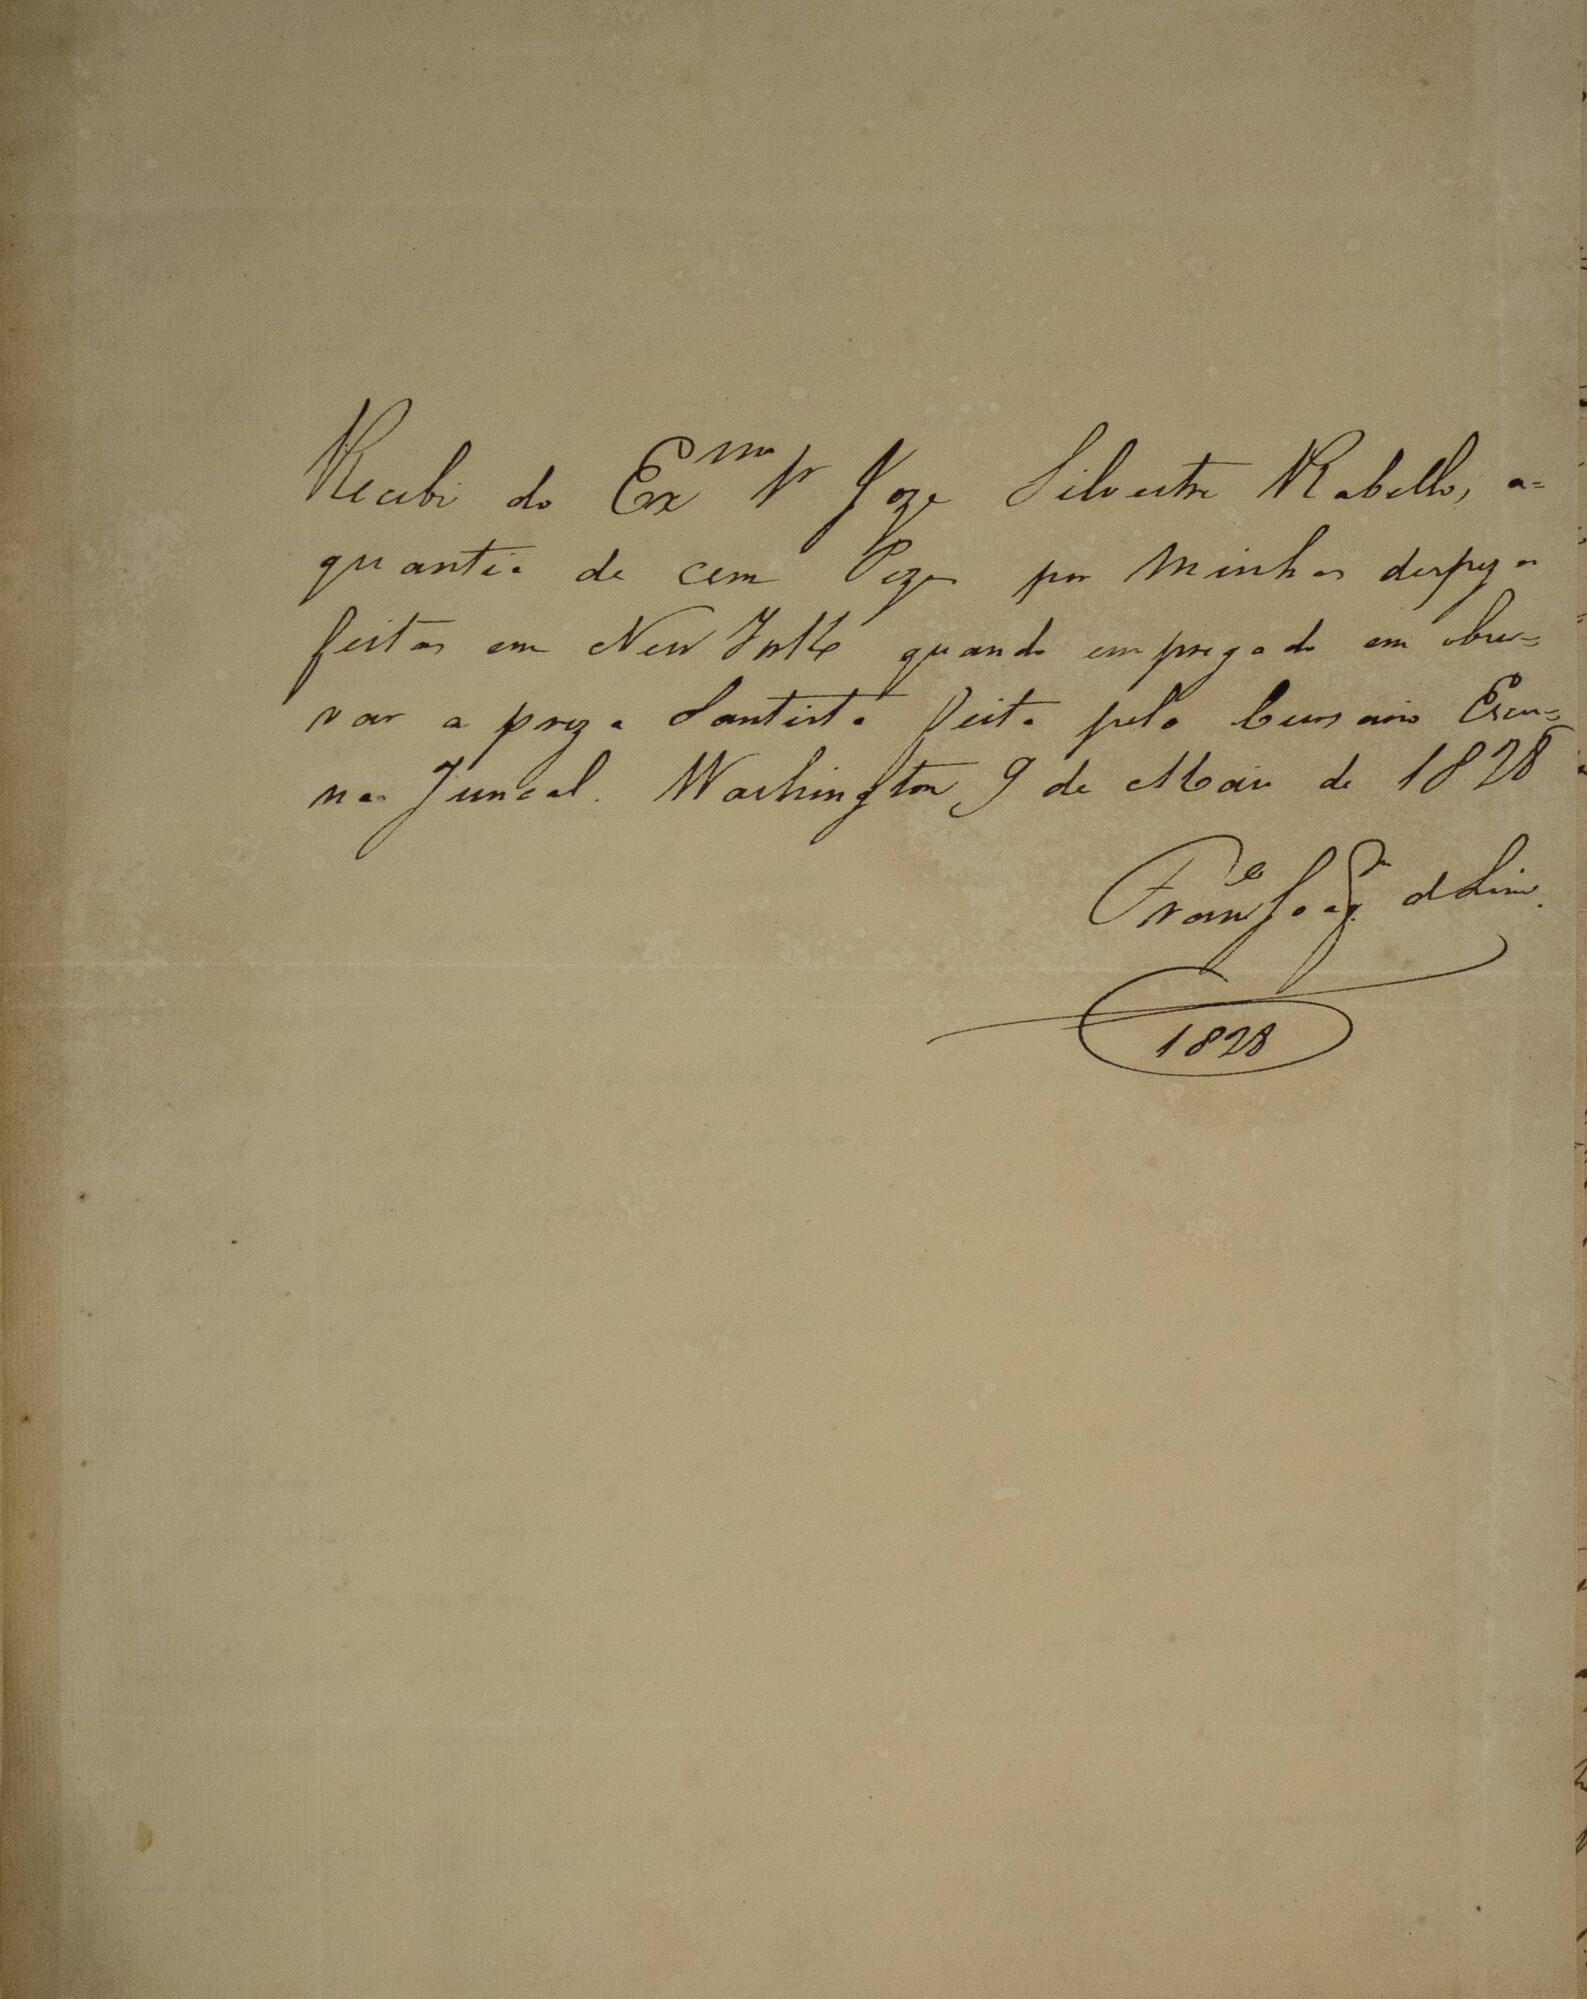 Recebi do Ex^mo Sr Joze Silvestre Rabello, a=
quantia de cem Pezos por minhas despezas
feitas em New York quando empregado em obser=
var a preza Santista feita pelo Cursario Escu=
na Juncal. Washington 9 de Maio de 1828
Fran^co Joaq^m d Lima.
1828